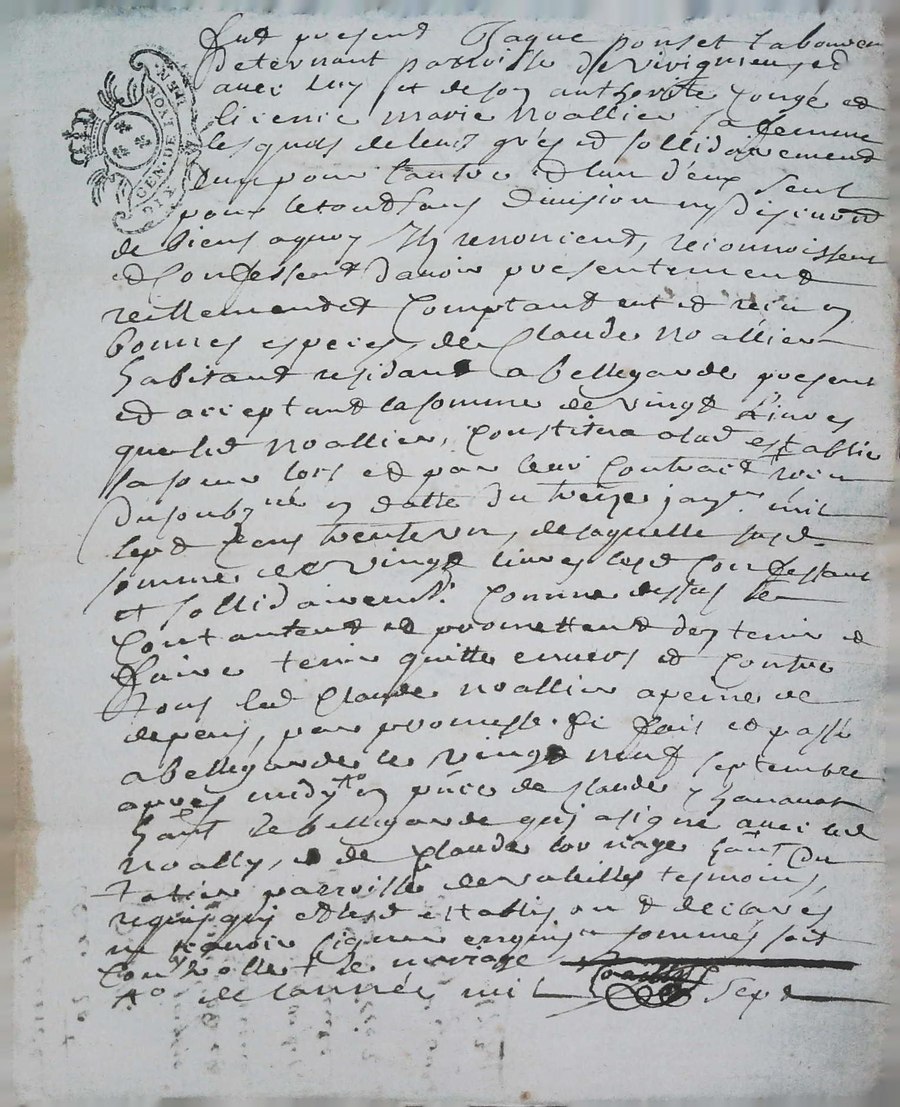 GEN.DE LYON
DIX DEN
Fut present Jaque ponset laboureur
de ternant parroisse de
avec luy et de son authorité congé et
licence marie noallier sa femme
lesquels de leurs grés et sollidairement
l'un pour l'autre et l'un d'eux seul
pour le tout sans division ny discution
de biens a quoy Ils renoncient, reconnoissent
et Confessent d'avoir presentement
reellement et Comptant eut et receu en
bonnes especes de Claude noallier
habitant residant a bellegarde present
et acceptant la somme de vingt Livres
que led noallier, Constitua a lad establie
sa soeur lors et par leur Contract receu
du soubz né en datte du treize janer. mil
sept Cens trente un, de laquelle susd
somme de vingt livres lesd Confessant
et sollidairemt. Comme dessus se
Contantent et promettent d'en tenir et
faire tenir quitte envers et Contre
tous led Claude noallier a peine de
depens, par promesse. fait et passé
a bellegarde le vingt neuf septembre
apres midy en pnce de Claude
hant de bellegarde qui a signé avec led
noally, et de Claude hant du
parroisse de tesmoins,
requis qui et lesd establis ont declarés
ne sçavoir signer enquis sommés soit
Controllé
Ao de l'année mil Sept